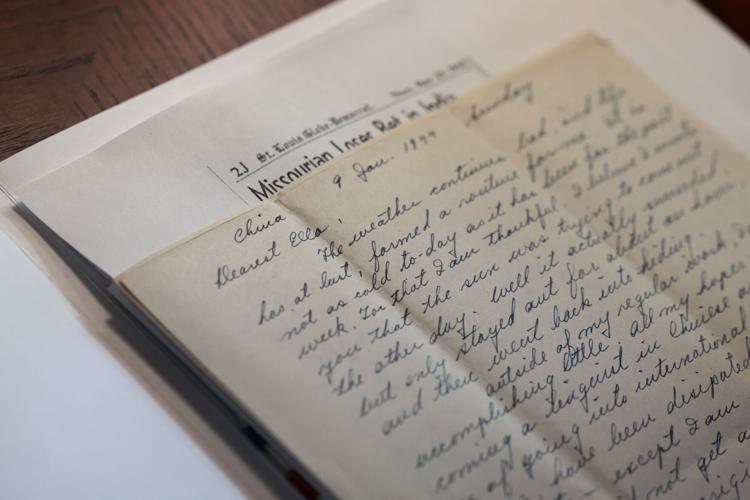 2J St. Louis Globe-Democrat
Missourian Loses Bet in India
9 Jan. 1944 Sunday
China
Dearest Ella,
The weather continues bad, and life
has at last, formed a routine for me. It is
not as cold to-day as it has been for the past
week. For that I am thankful. I believe I wrote
you that the sun was trying to come out
the other day. Well it actually succeeded.
but only stayed out for about an hour,
and then went back into hiding.
outside of my regular work,
accomplishing little. All my hopes
coming a linguist in Chinese a
of going into international
have been disipated
except I am
not get a